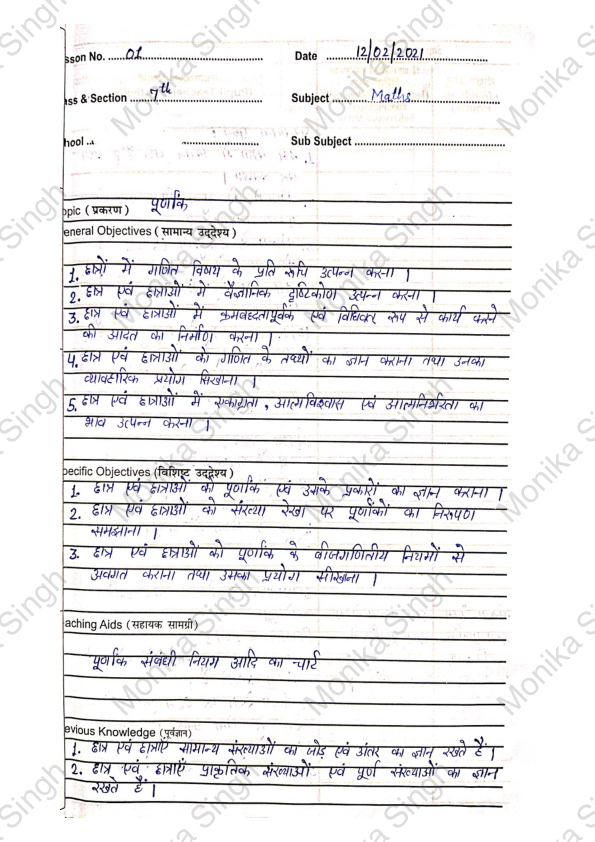 sson No. ...... 01 Date ... 12/02/2021
ass & Section ... 7th Subject ... Maths
hool .. Sub Subject ...
opic ( प्रकरण ) पूर्णांक
eneral Objectives ( सामान्य उद्देश्य )
1. छात्रों में गणित विषय के प्रति रूचि उत्पन्न करना ।
2. छात्र एवं छात्राओं में वैज्ञानिक दृष्टिकोण उत्पन्न करना ।
3. छात्र एवं छात्राओं में क्रमबद्धतापूर्वक एवं विधिवत रूप से कार्य करने
की आदत का निर्माण करना ।
4. छात्र एवं छात्राओं को गणित के तथ्यों का ज्ञान कराना तथा उनका
व्यावहारिक प्रयोग सिखाना ।
5. छात्र एवं छात्राओं में एकाग्रता, आत्मविश्वास एवं आत्मनिर्भरता का
भाव उत्पन्न करना ।
pecific Objectives (विशिष्ट उद्देश्य )
1. छात्र एवं छात्राओं को पूर्णांक एवं उसके प्रकारों का ज्ञान कराना ।
2. छात्र एवं छात्राओं को संख्या रेखा पर पूर्णांकों का निरूपण
समझाना ।
3. छात्र एवं छात्राओं को पूर्णांक के बीजगणितीय नियमों से
अवगत कराना तथा उसका प्रयोग सीखना ।
aching Aids ( सहायक सामग्री)
पूर्णांक संबंधी नियम आदि का चार्ट
evious Knowledge (पूर्वज्ञान)
1. छात्र एवं छात्राएं सामान्य संख्याओं का जोड़ एवं अंतर का ज्ञान रखते हैं ।
2. छात्र एवं छात्राएं प्राकृतिक संख्याओं एवं पूर्ण संख्याओं का ज्ञान
रखते हैं ।
Monika Singh